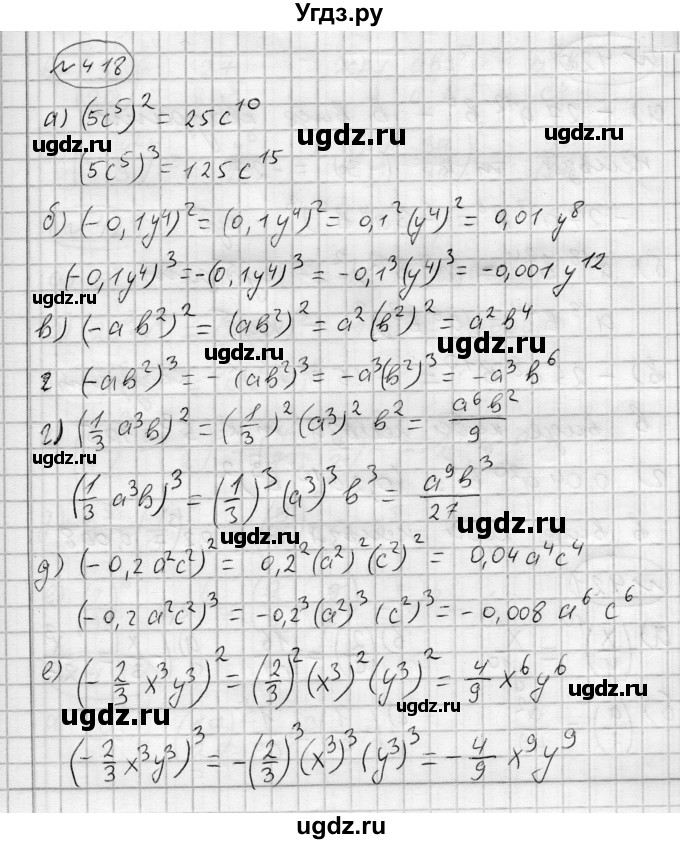 Угдз.ру
№ 418
а) (5c⁵)² = 25c¹⁰
ugdz.ru
ugdz.ru
(5c⁵)³ = 125c¹⁵
ugdz.ru
б) (-0,1y⁴)² = (0,1y⁴)² = 0,1²(y⁴)² = 0,01 y⁸
(-0,1y⁴)³ = -(0,1y⁴)³ = -0,1³(y⁴)³ = -0,001 y¹²
ugdz.ru
в) (-ab²)² = (ab²)² = a²(b²)² = a²b⁴
ugdz.ru
(-ab²)³ = -(ab²)³ = -a³(b²)³ = -a³b⁶
г) (1/3 a³b)² = (1/3)²(a³)² b² = a⁶b²/9
ugdz.ru
(1/3 a³b)³ = (1/3)³(a³)³ b³ = a⁹b³/27
ugdz.ru
д) (-0,2a²c²)² = 0,2²(a²)²(c²)² = 0,04a⁴c⁴
ugdz.ru
(-0,2a²c²)³ = -0,2³(a²)³(c²)³ = -0,008 a⁶ c⁶
е) (-2/3 x³y³)² = (2/3)²(x³)²(y³)² = 4/9 x⁶y⁶
ugdz.ru
ugdz.ru
ugdz.ru
(-2/3 x³y³)³ = -(2/3)³(x³)³(y³)³ = -4/9 x⁹y⁹
ugdz.ru
ugdz.ru